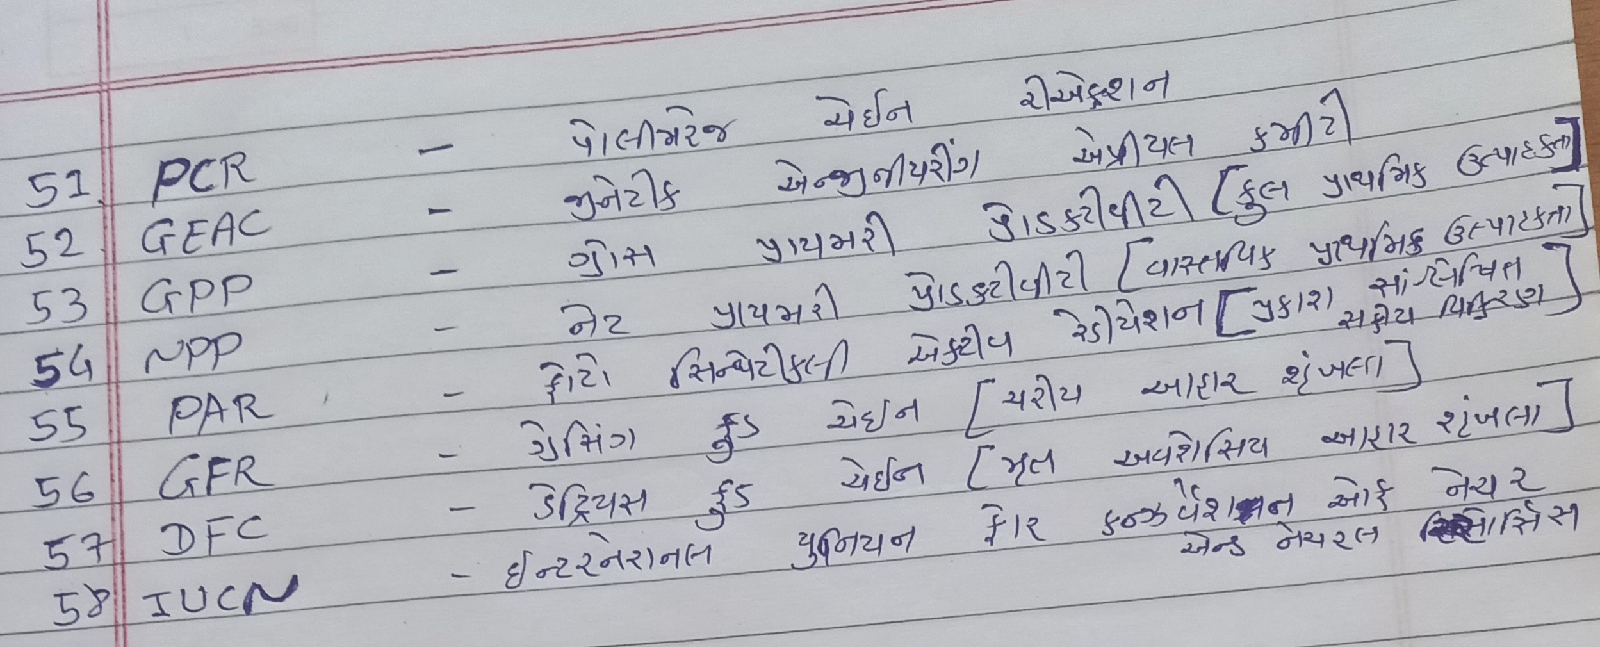 51 PCR - પોલીમરેજ ચેઈન રીએક્શન
52 GEAC - જીનેટીક એન્જીનીયરીંગ એપ્રીયલ કમીટી
53 GPP - ગ્રોસ પ્રાયમરી પ્રોડક્ટીવીટી [કુલ પ્રાથમિક ઉત્પાદકતા]
54 NPP - નેટ પ્રાયમરી પ્રોડક્ટીવીટી [વાસ્તવિક પ્રાથમિક ઉત્પાદકતા]
55 PAR - ફોટો સિન્થેટીકલી એક્ટીવ રેડીયેશન [પ્રકાશ સાંશ્લેષિત
સક્રીય વિકિરણ]
56 GFR - ગ્રેસિંગ ફુડ ચેઈન [ચરીય આહાર શૃંખલા]
57 DFC - ડેટ્રિયસ ફુડ ચેઈન [મૃત અવશેસિય આહાર શૃંખલા]
58 IUCN - ઈન્ટરનેશનલ યુનિયન ફોર કન્ઝર્વેશન ઓફ નેચર
એન્ડ નેચરલ